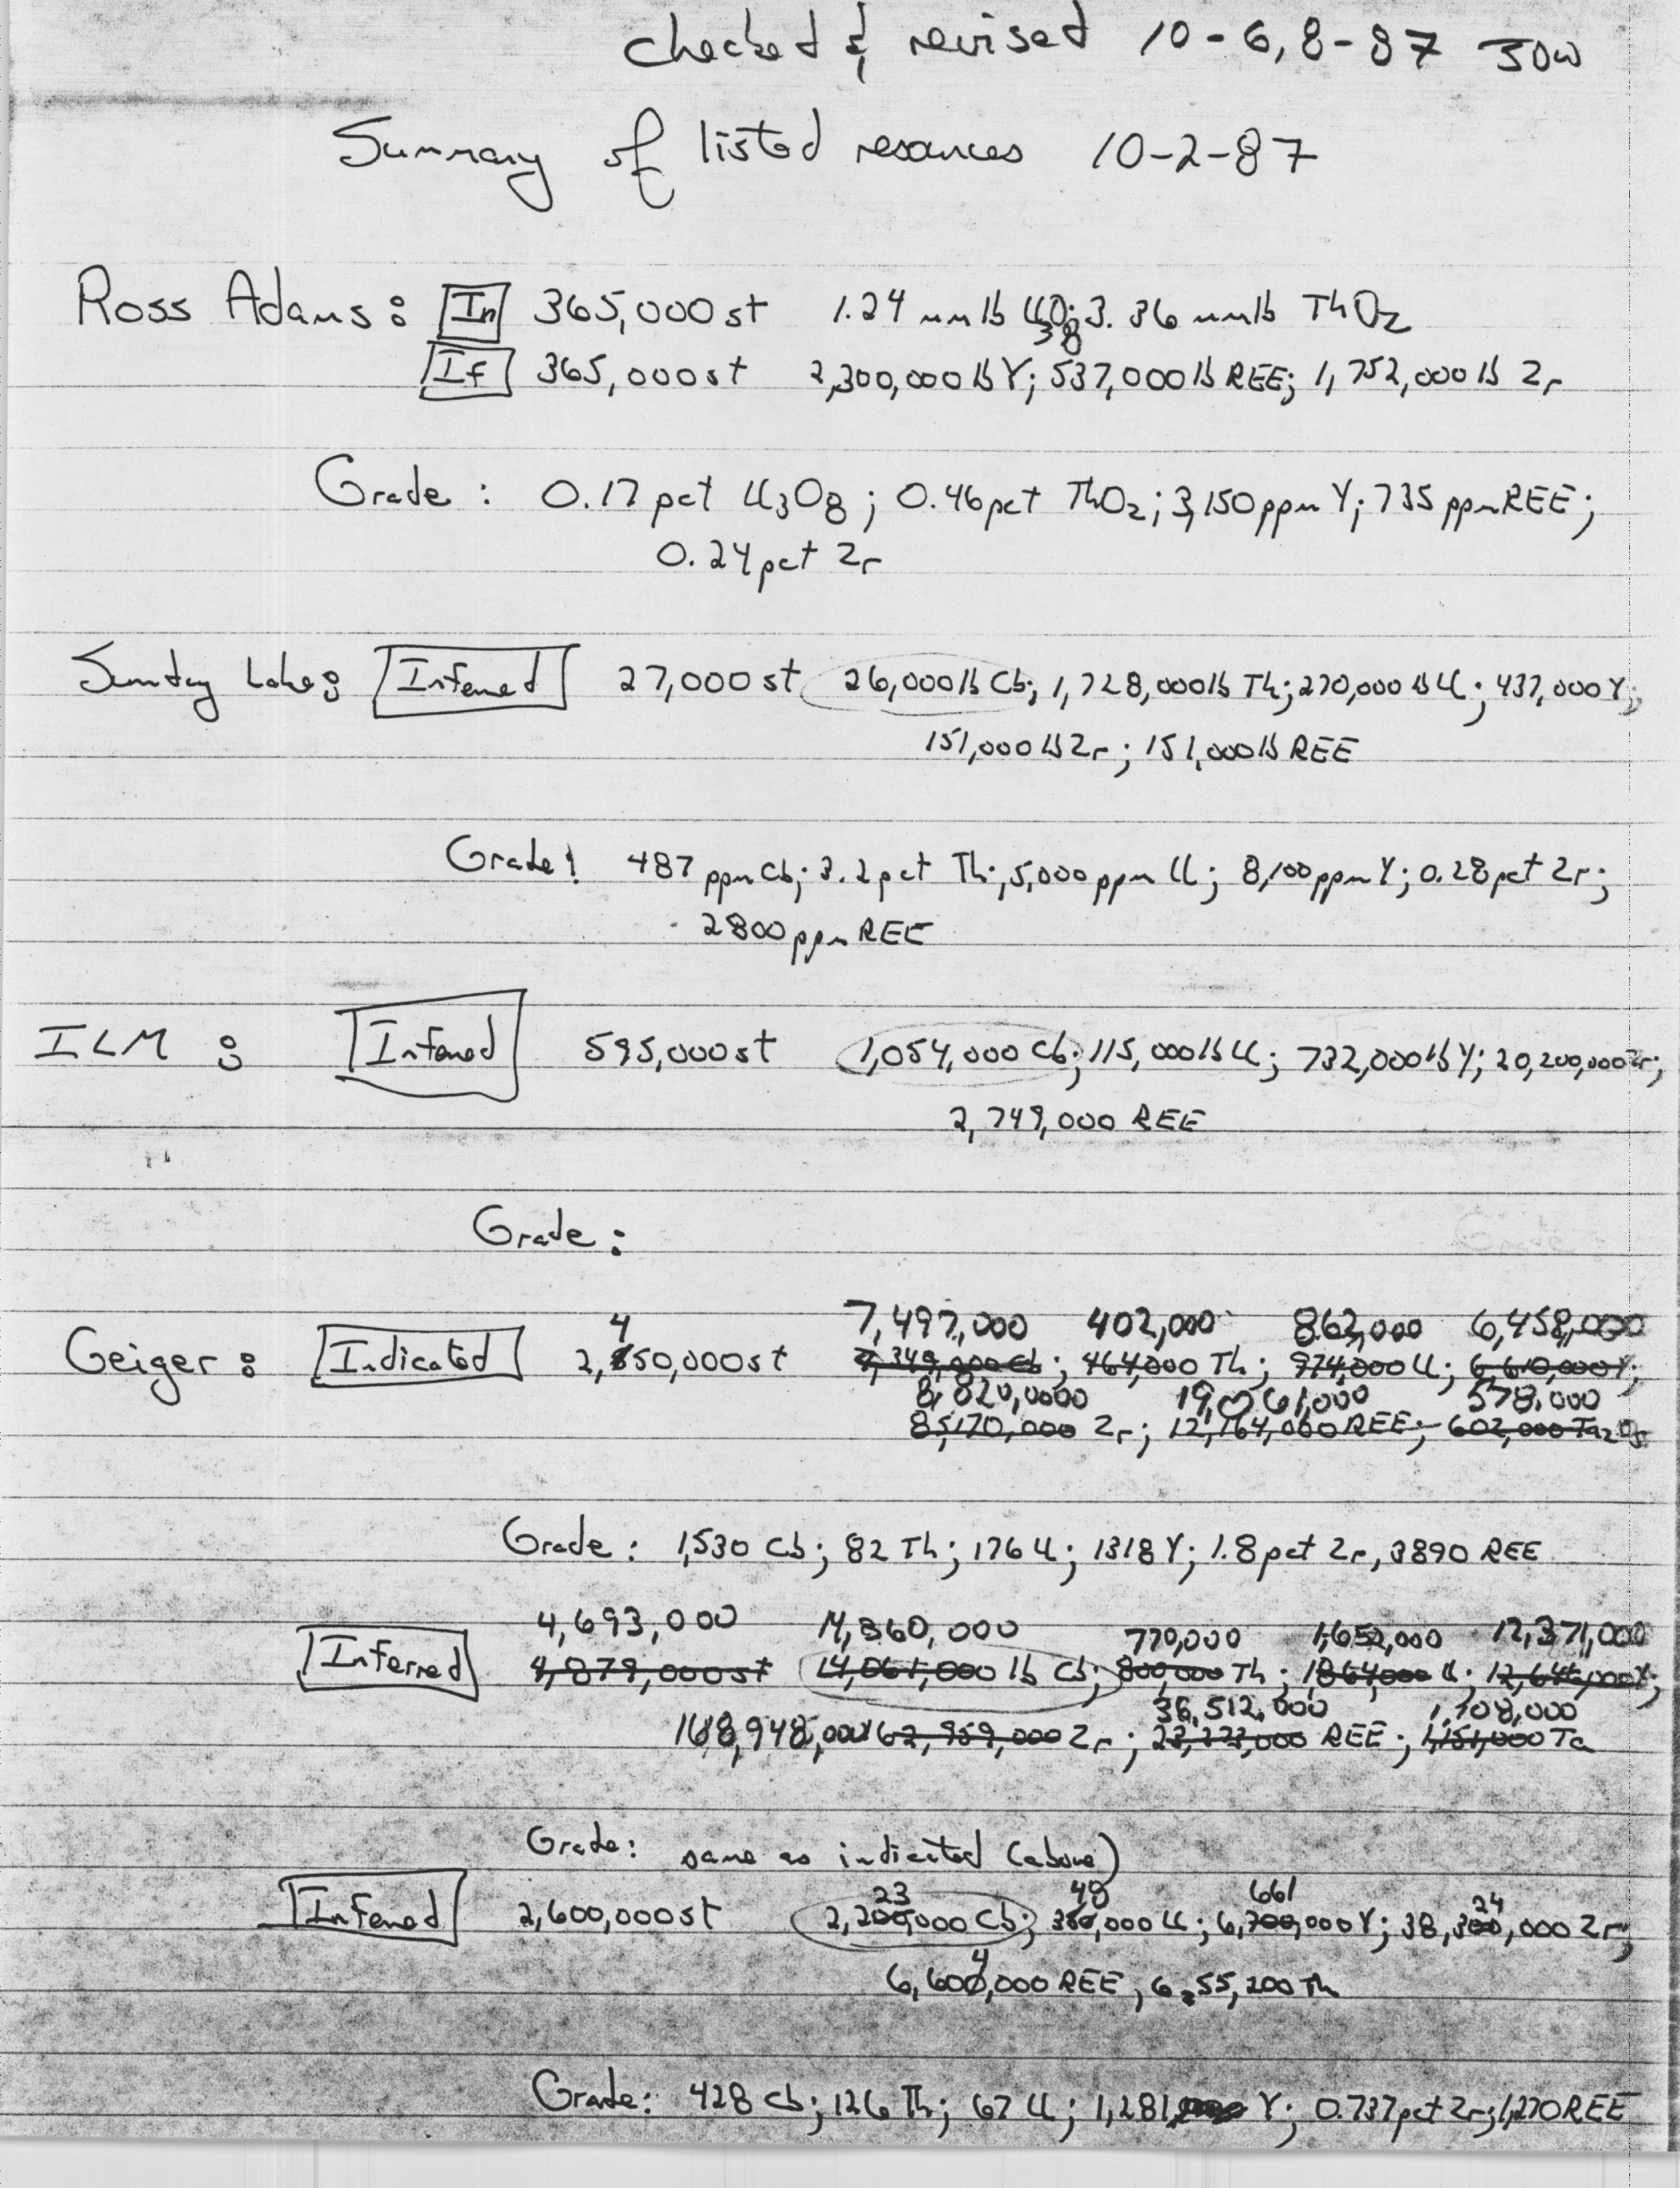 checked & revised 10-6,8-87 JDW
Summary of listed resources 10-2-87
Ross Adams: In 365,000 st 1.24 mmlb U3O8; 3.36 mmlb ThO2
If 365,000 st 2,300,000 lb Y; 537,000 lb REE; 1,752,000 lb Zr
Grade: 0.17 pct U3O8; 0.46 pct ThO2; 3,150 ppm Y; 735 ppm REE;
0.24 pct Zr
Sunday Lake: Inferred 27,000 st 26,000 lb Cb; 1,728,000 lb Th; 270,000 lb U; 437,000 Y;
151,000 lb Zr; 151,000 lb REE
Grade: 487 ppm Cb; 3.2 pct Th; 5,000 ppm U; 8,100 ppm Y; 0.28 pct Zr;
2800 ppm REE
ILM: Inferred 595,000 st 1,054,000 Cb; 115,000 lb U; 732,000 lb Y; 20,200,000 Zr;
2,749,000 REE
Grade:
4 7,497,000 402,000 862,000 6,458,000
Geiger: Indicated 2,550,000 st 7,349,000 Cb; 464,000 Th; 974,000 U; 6,610,000 Y;
8,820,0000 19,061,000 578,000
85,170,000 Zr; 12,164,000 REE; 602,000 Ta2O5
Grade: 1,530 Cb; 82 Th; 176 U; 1318 Y; 1.8 pct Zr, 3890 REE
4,693,000 14,360,000 770,000 1,652,000 12,371,000
Inferred 4,879,000 st 14,061,000 lb Cb; 800,000 Th; 1864,000 U; 12,646,000 Y;
36,512,000 1,108,000
168,948,000 162,959,000 Zr; 23,273,000 REE; 1,151,000 Ta
Grade: same as indicated (above)
23 48 661 24
Inferred 2,600,000 st 2,200,000 Cb; 350,000 U; 6,700,000 Y; 38,300,000 Zr;
4
6,600,000 REE, 6,55,200 Th
Grade: 428 Cb; 126 Th; 67 U; 1,281 Y; 0.737 pct Zr; 1,270 REE